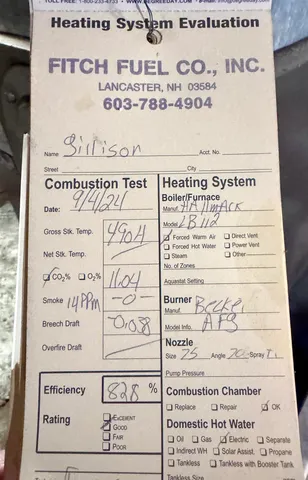 TOLL FREE: 1-800-233-4733 • WWW.DEGREEDAY.COM • E-mail: info@degreeday.com
Heating System Evaluation
FITCH FUEL CO., INC.
LANCASTER, NH 03584
603-788-4904
Name Acct. No.
Street City
Combustion Test
Date: 9/4/24
Gross Stk. Temp. 490.4
Net Stk. Temp.
CO₂% O₂% 11.04
Smoke 14 PPM -0-
Breech Draft
Overfire Draft
Efficiency 82.8 %
Rating
EXCELLENT
GOOD
FAIR
POOR
Heating System
Boiler/Furnace
Manuf.
Model LB 112
Forced Warm Air Direct Vent
Forced Hot Water Power Vent
Steam Other
No. of Zones
Aquastat Setting
Burner
Manuf.
Model Info.
Nozzle
Size 75 Angle 70 Spray
Pump Pressure
Combustion Chamber
Replace Repair OK
Domestic Hot Water
Oil Gas Electric Separate
Indirect WH Solar Assist. Propane
Tankless Tankless with Booster Tank